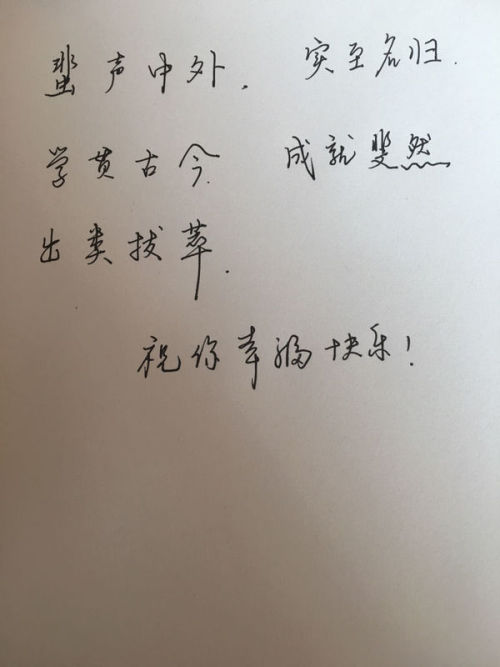 蜚声中外, 实至名归.
学贯古今. 成就斐然
出类拔萃.
祝你幸福快乐!